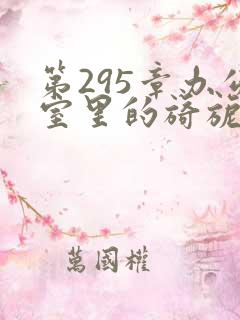 第295章办公
室里的旖旎
萬國權